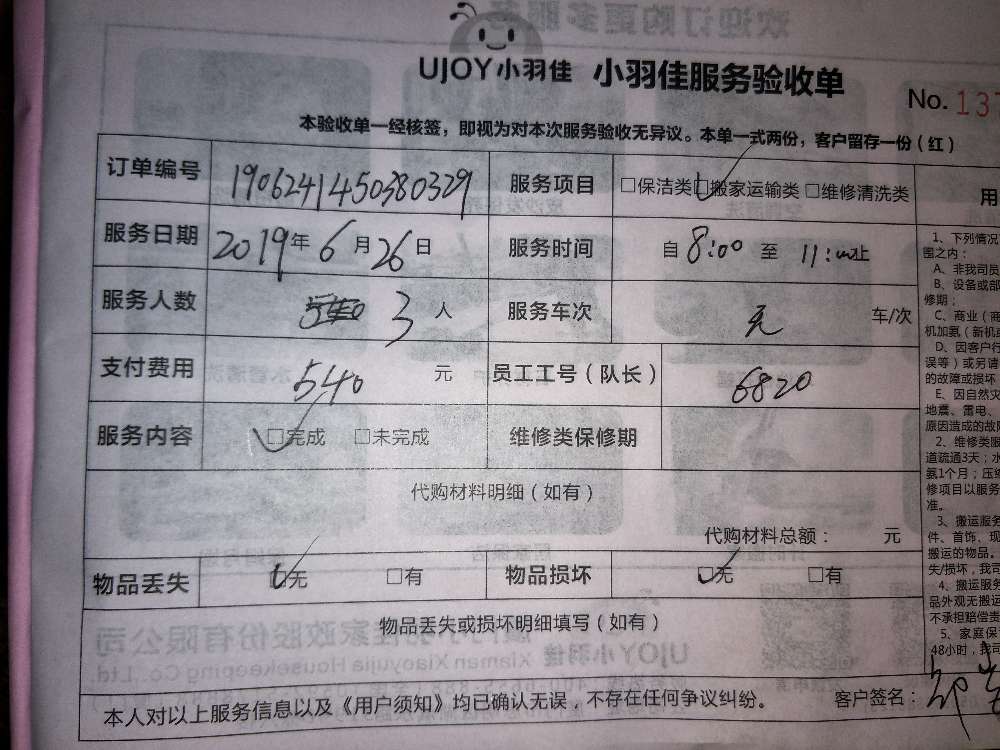 UJOY小羽佳 小羽佳服务验收单
No. 137
本验收单一经核签，即视为对本次服务验收无异议。本单一式两份，客户留存一份（红）
订单编号 1906241450380329 服务项目 □保洁类 □搬家运输类 □维修清洗类
服务日期 2019年6月26日 服务时间 自 8:00 至 11:00止
服务人数 3 人 服务车次 无 车/次
支付费用 540 元 员工工号（队长） 6820
服务内容 □完成 □未完成 维修类保修期
代购材料明细（如有）
代购材料总额： 元
物品丢失 □无 □有 物品损坏 □无 □有
物品丢失或损坏明细填写（如有）
本人对以上服务信息以及《用户须知》均已确认无误，不存在任何争议纠纷。 客户签名：
用
1、下列情况
围之内：
A、非我司员
B、设备或部
修期；
C、商业（商
机加氨（新机
D、因客户行
误等）或另请
的故障或损坏
E、因自然灾
地震、雷电、
原因造成的故
2、维修类服
道疏通3天；水
氨1个月；压缩
修项目以服务
准。
3、搬运服务
件、首饰、现
搬运的物品。
失/损坏，我司
4、搬运服务
品外观无搬运
不承担赔偿责
5、家庭保
48小时，我司